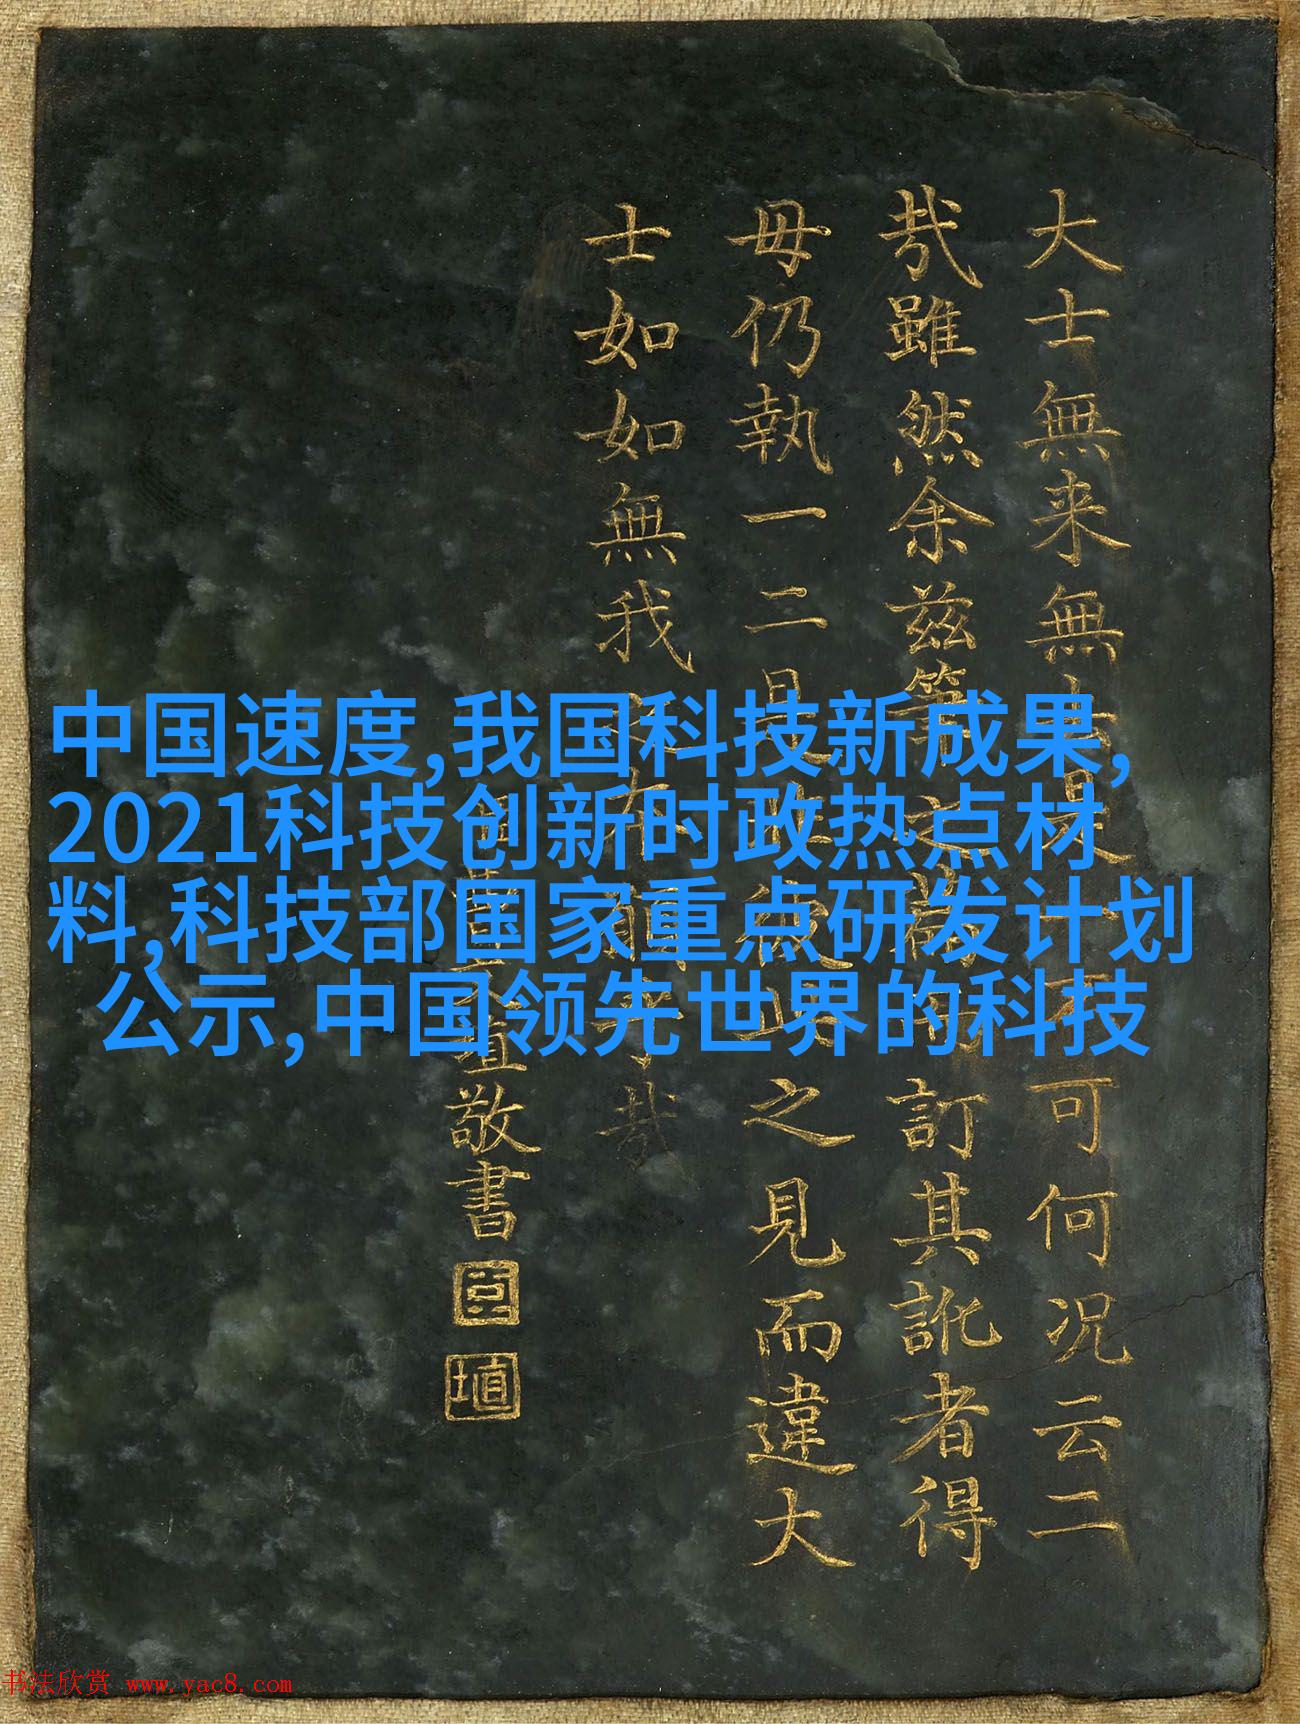 大士無来無去是可何况云二
哉雖然余兹笋訂其訛者得
毋仍執一二是之見而違大
士如如無我哉
臣直敬書
臣
埴
中国速度,我国科技新成果,
2021科技创新时政热点材
料,科技部国家重点研发计划
公示,中国领先世界的科技
书法欣赏 www.yac8.com